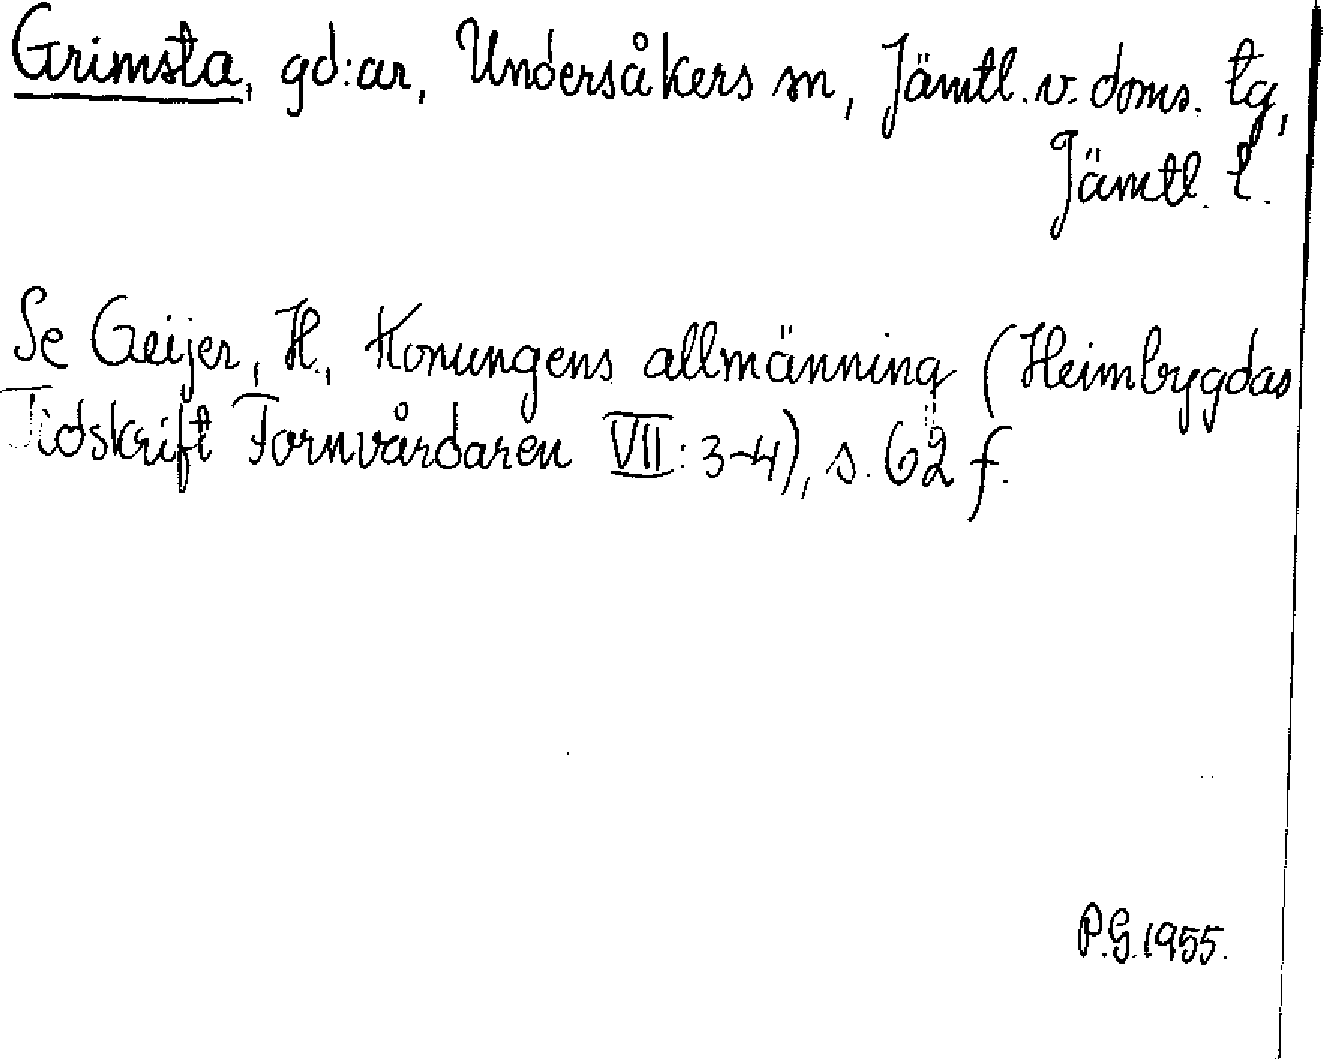 Grimsta, gd:ar, Undersåkers sn, Jämtl. v. doms. tg,
Jämtl. l.
Se Geijer, H., Konungens allmänning (Heimbygdas
Tidskrift Fornvårdaren VII: 3-4), s. 62 f.
P.G. 1955.